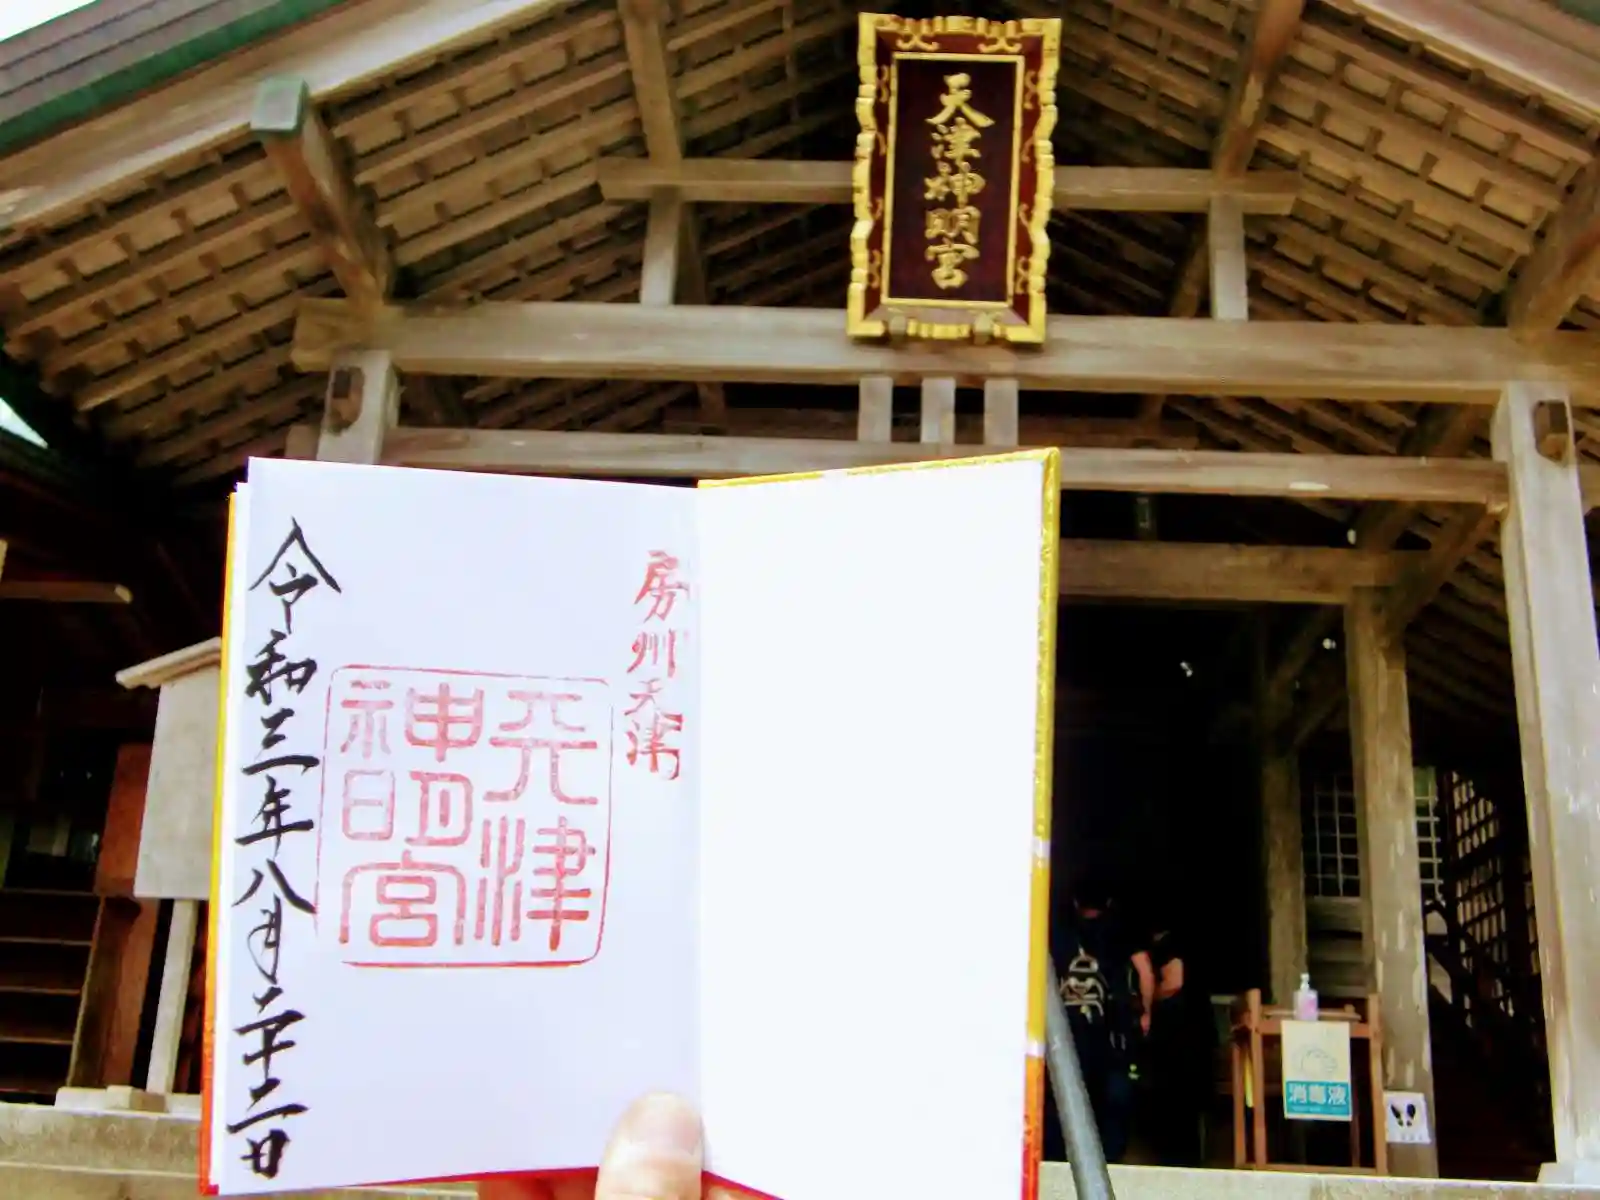 天津神明宮
房州天津
天津
神明宮
令和三年八月二十二日
消毒液